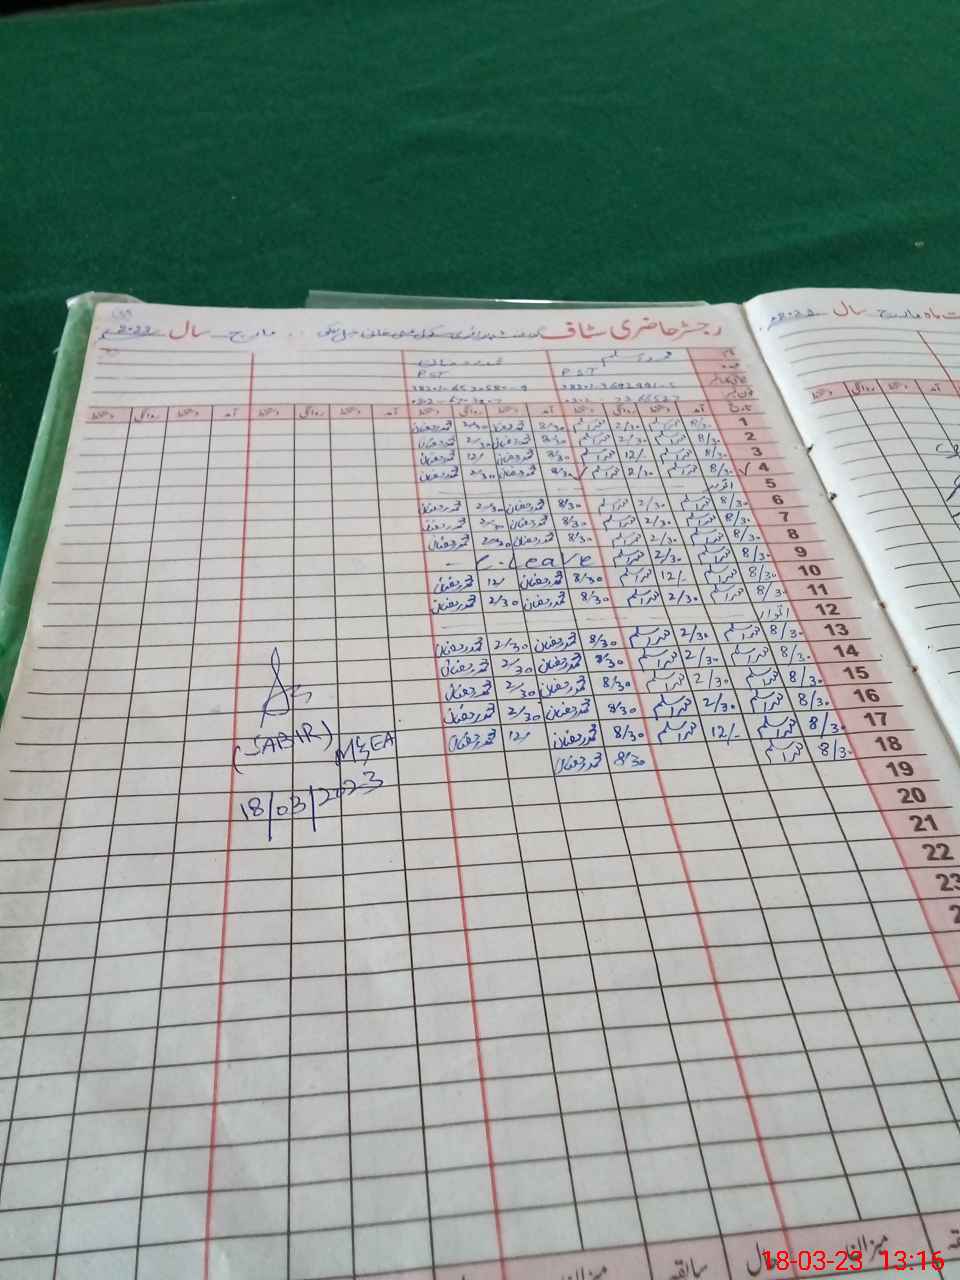 رجسٹر حاضری سٹاف
مارچ سال 2023
ماہ مارچ سال 2023
PST
PST
تاریخ آمد دستخط روانگی دستخط آمد دستخط روانگی دستخط آمد دستخط روانگی دستخط آمد دستخط روانگی دستخط
1 8/30 محمد اسلم 2/30 محمد اسلم 8/30 محمد رمضان 2/30 محمد رمضان
2 8/30 محمد اسلم 2/30 محمد اسلم 8/30 محمد رمضان 2/30 محمد رمضان
3 8/30 محمد اسلم 12/- محمد اسلم 8/30 محمد رمضان 12/ محمد رمضان
4 8/30 محمد اسلم 2/30 محمد اسلم 8/30 محمد رمضان 2/30 محمد رمضان
5 اتوار
6 8/30 محمد اسلم 2/30 محمد اسلم 8/30 محمد رمضان 2/30 محمد رمضان
7 8/30 محمد اسلم 2/30 محمد اسلم 8/30 محمد رمضان 2/30 محمد رمضان
8 8/30 محمد اسلم 2/30 محمد اسلم 8/30 محمد رمضان 2/30 محمد رمضان
9 8/30 محمد اسلم 2/30 محمد اسلم C. Leave
10 8/30 محمد اسلم 12/- محمد اسلم 8/30 محمد رمضان 12/ محمد رمضان
11 8/30 محمد اسلم 2/30 محمد اسلم 8/30 محمد رمضان 2/30 محمد رمضان
12 اتوار
13 8/30 محمد اسلم 2/30 محمد اسلم 8/30 محمد رمضان 2/30 محمد رمضان
14 8/30 محمد اسلم 2/30 محمد اسلم 8/30 محمد رمضان 2/30 محمد رمضان
15 8/30 محمد اسلم 2/30 محمد اسلم 8/30 محمد رمضان 2/30 محمد رمضان
16 8/30 محمد اسلم 2/30 محمد اسلم 8/30 محمد رمضان 2/30 محمد رمضان
17 8/30 محمد اسلم 12/- محمد اسلم 8/30 محمد رمضان 12/ محمد رمضان
18 8/30 محمد اسلم 8/30 محمد رمضان
19
20
21
22
23
(SABIR)
MEA
18/03/2023
میزان حال سابقہ میزان
18-03-23 13:16